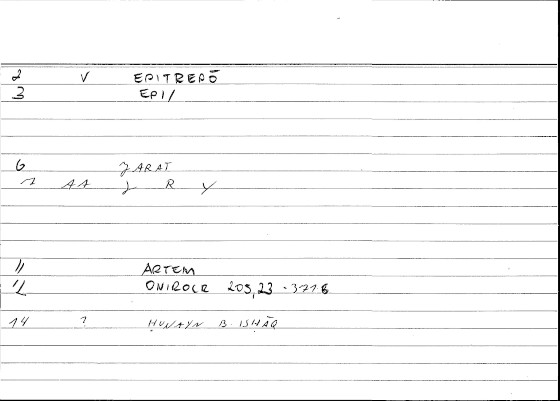 2 V EPITREPŌ
3 EPI/
6 JARAT
7 AA J R Y
11 ARTEM
12 ONIROCR 205,23 - 371 8
14 ? ḤUNAYN B. ISḤĀQ